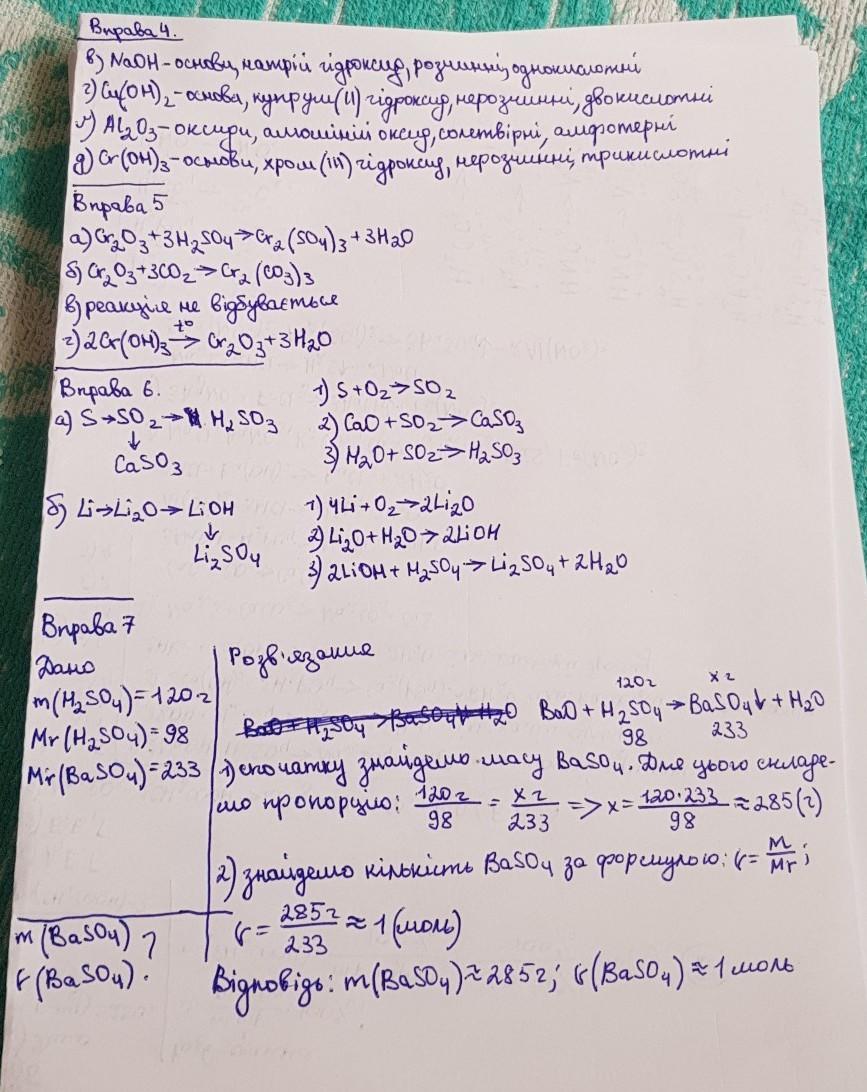 Вправа 4.
в) NaOH - основи, натрій гідроксид, розчинні, однокислотні
г) Cu(OH)₂ - основа, купрум(II) гідроксид, нерозчинні, двокислотні
Al₂O₃ - оксиди, алюміній оксид, солетвірні, амфотерні
д) Cr(OH)₃ - основи, хром(III) гідроксид, нерозчинні, трикислотні
Вправа 5
а) Cr₂O₃ + 3H₂SO₄ → Cr₂(SO₄)₃ + 3H₂O
б) Cr₂O₃ + 3CO₂ → Cr₂(CO₃)₃
в) реакція не відбувається
г) 2Cr(OH)₃ →t° Cr₂O₃ + 3H₂O
Вправа 6.
а) S → SO₂ → H₂SO₃
↓
CaSO₃
1) S + O₂ → SO₂
2) CaO + SO₂ → CaSO₃
3) H₂O + SO₂ → H₂SO₃
б) Li → Li₂O → LiOH
↓
Li₂SO₄
1) 4Li + O₂ → 2Li₂O
2) Li₂O + H₂O → 2LiOH
3) 2LiOH + H₂SO₄ → Li₂SO₄ + 2H₂O
Вправа 7
Дано
m(H₂SO₄) = 120г
Mr(H₂SO₄) = 98
Mr(BaSO₄) = 233
m(BaSO₄) ?
ν(BaSO₄)
Розв'язання
BaO + H₂SO₄ → BaSO₄↓ + H₂O
120г x г
BaO + H₂SO₄ → BaSO₄↓ + H₂O
98 233
1) спочатку знайдемо масу BaSO₄. Для цього складе-
мо пропорцію: 120г/98 = x г/233 => x = 120·233/98 ≈ 285(г)
2) знайдемо кількість BaSO₄ за формулою: ν = m/Mr;
ν = 285г/233 ≈ 1 (моль)
Відповідь: m(BaSO₄) ≈ 285г; ν(BaSO₄) ≈ 1 моль